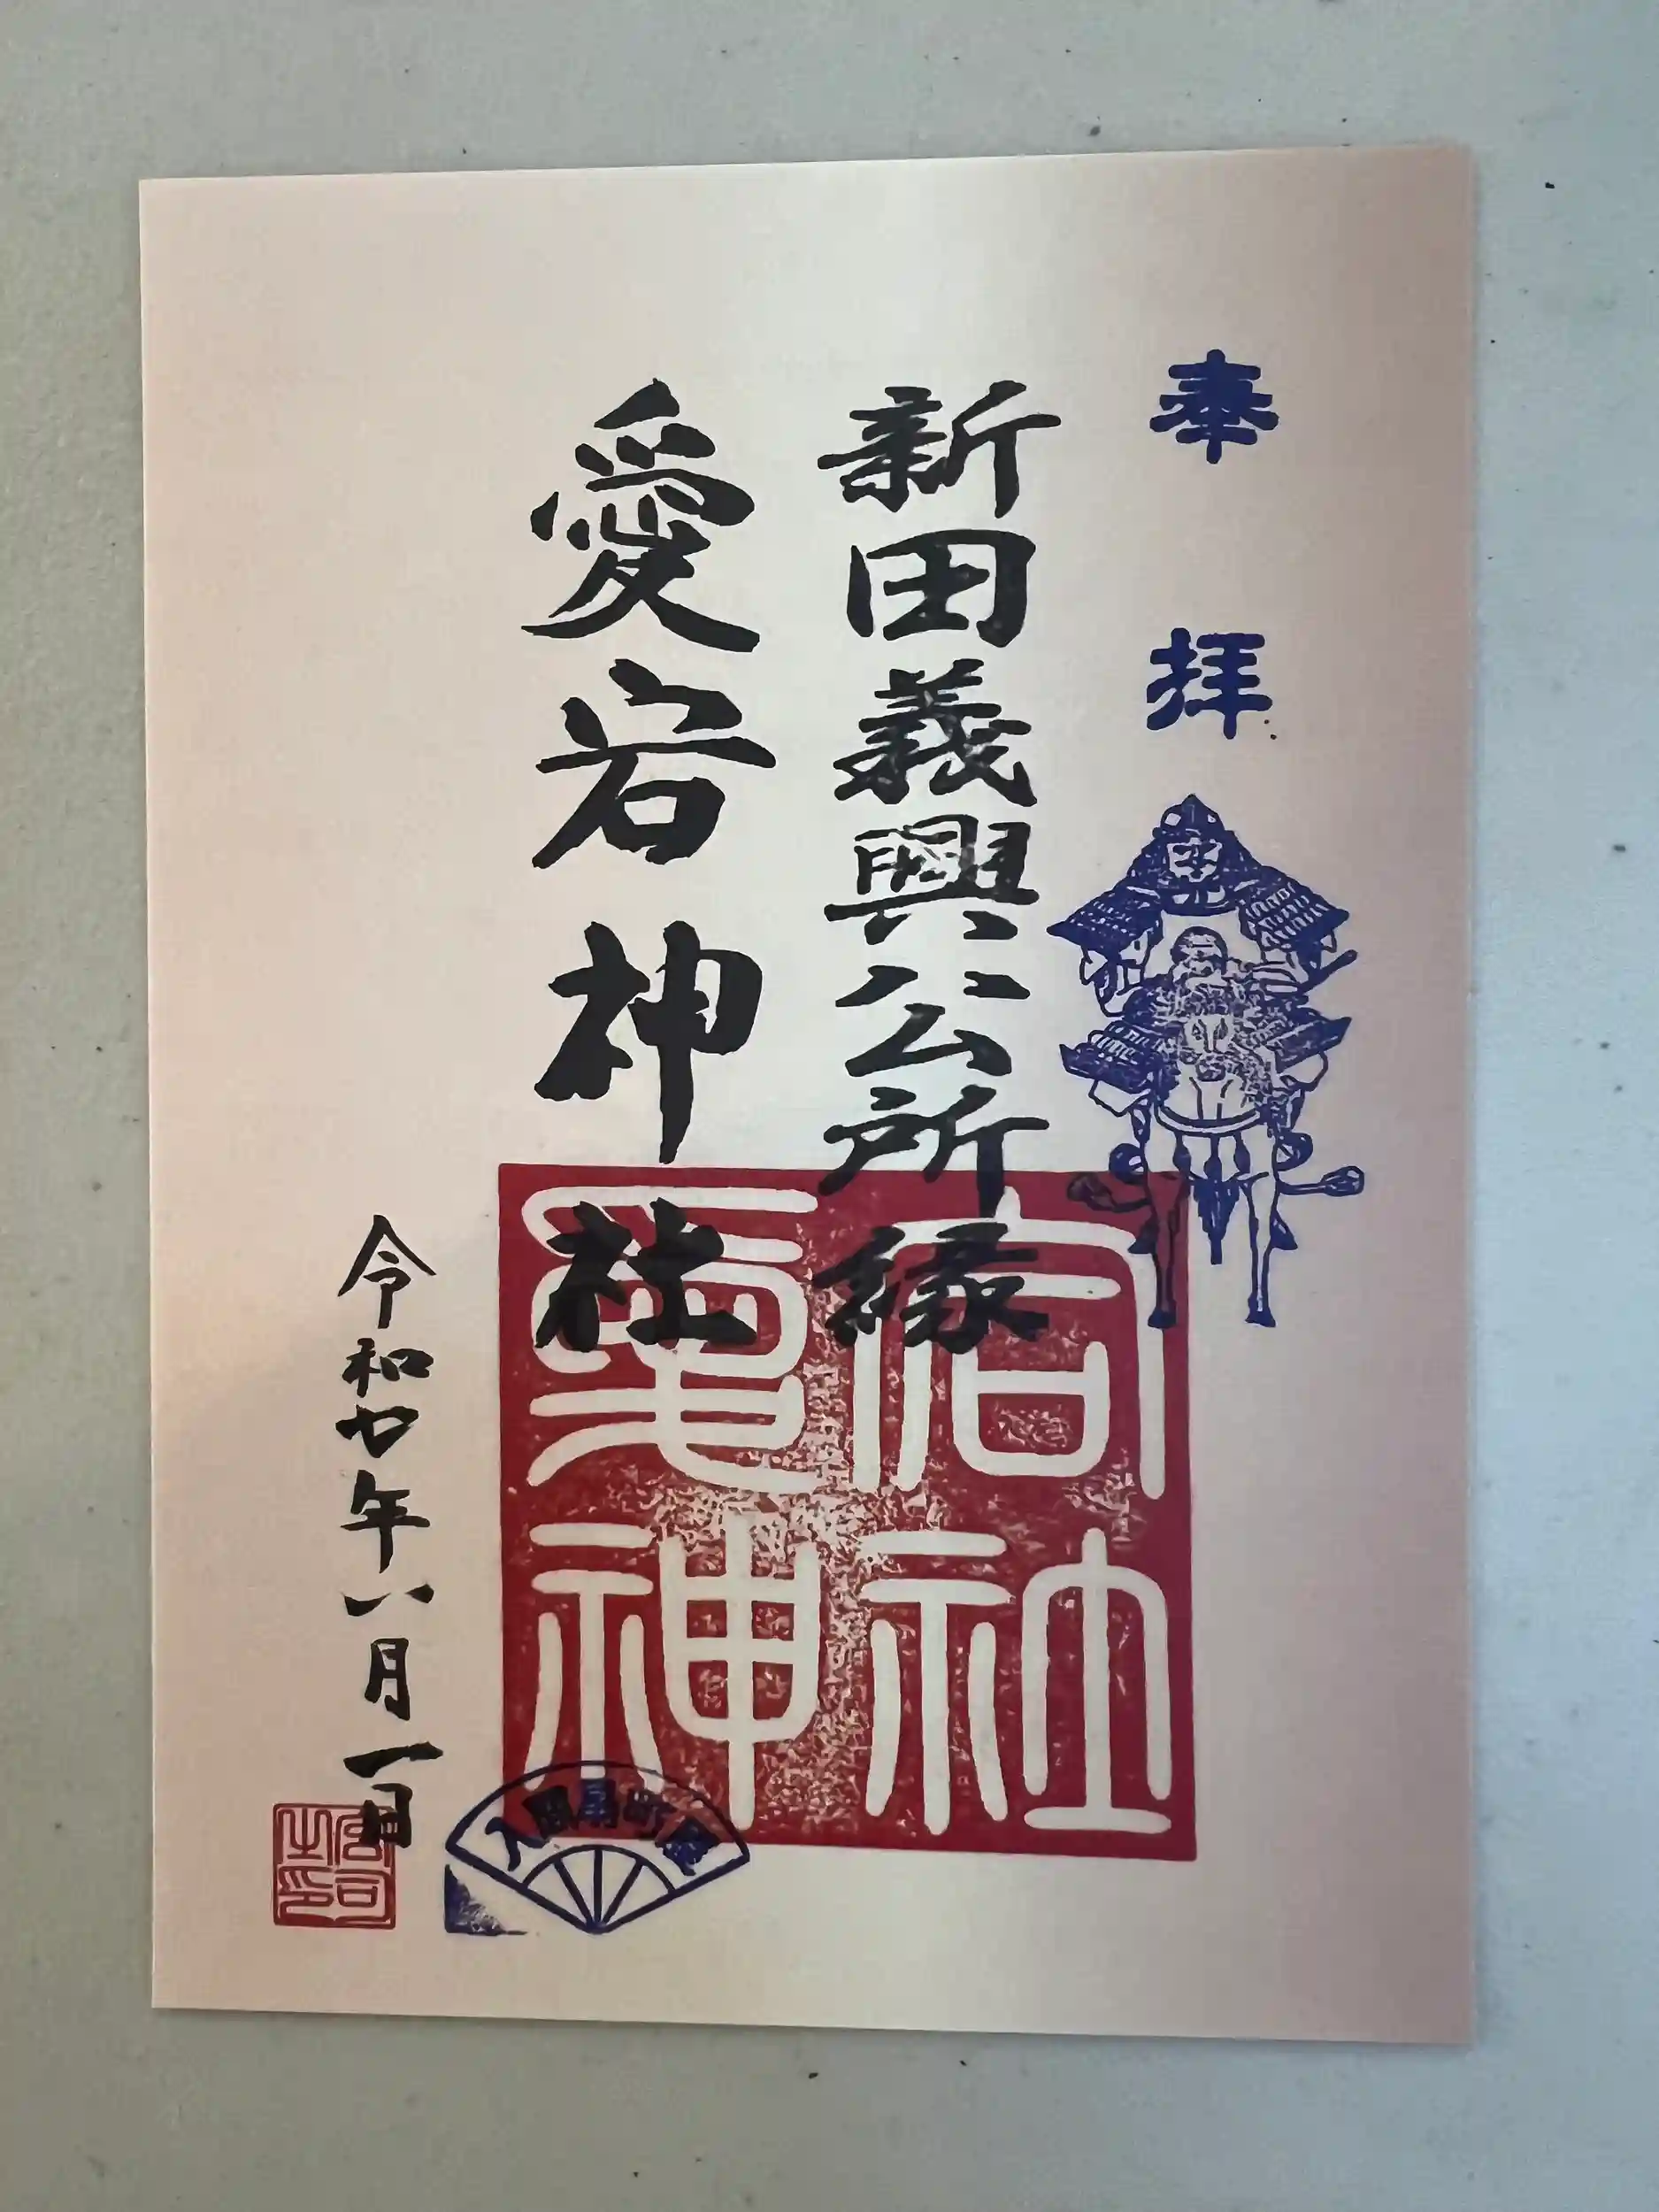 奉拝
新田義興公所縁
愛宕神社
愛宕
神社
令和七年八月一日
入間扇町屋
宮司之印